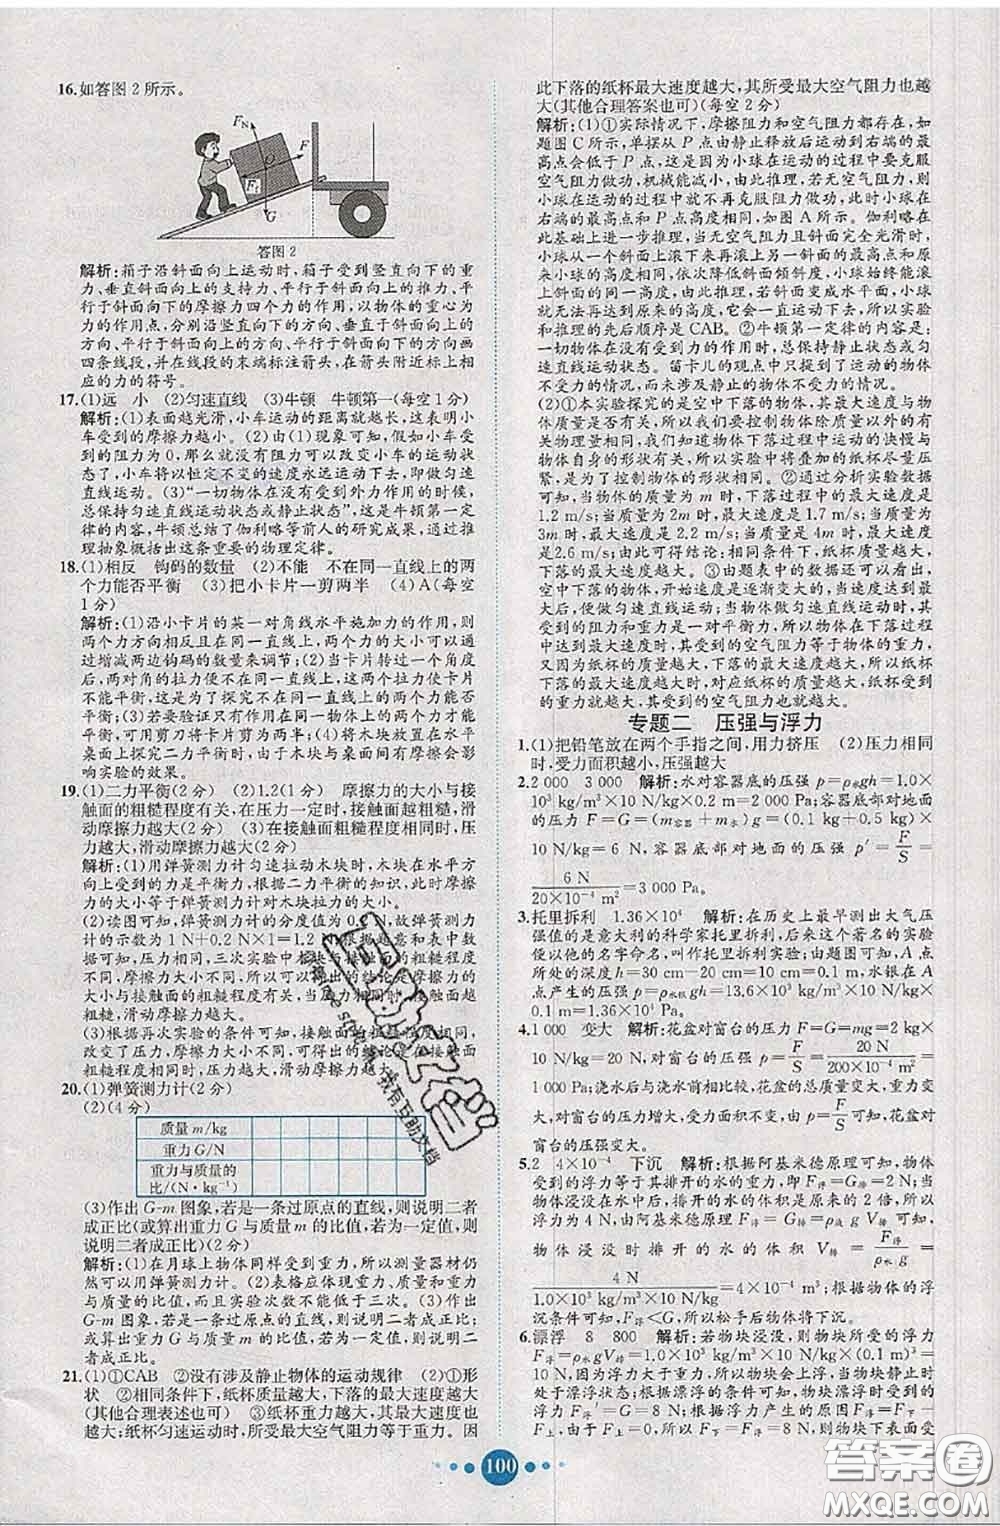 16.如答图2所示。
F_N
F
O
F_f
G
答图2
解析:箱子沿斜面向上运动时,箱子受到竖直向下的重
力、垂直斜面向上的支持力、平行于斜面向上的推力、平
行于斜面向下的摩擦力四个力的作用,以物体的重心为
力的作用点,分别沿竖直向下的方向、垂直于斜面向上的
方向、平行于斜面向上的方向、平行于斜面向下的方向画
四条线段,并在线段的末端标注箭头,在箭头附近标上相
应的力的符号。
17.(1)远 小 (2)匀速直线 (3)牛顿 牛顿第一(每空1分)
解析:(1)表面越光滑,小车运动的距离就越长,这表明小
车受到的摩擦力越小。(2)由(1)现象可知,假如小车受到
的阻力为0,那么就没有阻力可以改变小车的运动状
态了,小车将以恒定不变的速度永远运动下去,即做匀速
直线运动。(3)“一切物体在没有受到外力作用的时候,
总保持匀速直线运动状态或静止状态”,这是牛顿第一定
律的内容,牛顿总结了伽利略等前人的研究成果,通过推
理抽象概括出这条重要的物理定律。
18.(1)相反 钩码的数量 (2)不能 不在同一直线上的两
个力能否平衡 (3)把小卡片一剪两半 (4)A(每空
1分)
解析:(1)沿小卡片的某一对角线水平施加力的作用,则
两个力方向相反且在同一直线上,两个力的大小可以通
过增减两边钩码的数量来调节;(2)当卡片转过一个角度
时,两对角的拉力便不在同一直线上,两个拉力使卡片不
能平衡,这是为了探究不在同一直线上的两个力能否
平衡;(3)若要验证只有作用在同一物体上的两个力才能
平衡,可用剪刀将卡片剪为两半;(4)将木块放置在水平
桌面上探究二力平衡时,由于木块与桌面间有摩擦会影
响实验效果。
19.(1)二力平衡(2分) (2)1.2(1分) 摩擦力的大小与接
触面的粗糙程度有关,在压力一定时,接触面越粗糙,滑
动摩擦力越大(2分) (3)在接触面粗糙程度相同时,压
力越大,滑动摩擦力越大(2分)
解析:(1)用弹簧测力计匀速拉动木块时,木块在水平方
向上受到的力是平衡力,根据二力平衡的知识,此时摩擦
力的大小等于弹簧测力计对木块拉力的大小。
(2)读图可知,弹簧测力计的分度值为0.2 N,故弹簧测力
计的示数为1 N+0.2 N×1=1.2
(3)根据再次实验的条件可知,接触面的粗糙程度相同,
改变了压力,压力越大,摩擦力越大,滑动摩擦力越大。
20.(1)弹簧测力计(2分)
(2)(4分)
质量m/kg
重力G/N
重力与质量的
比/(N·kg⁻¹)
(3)作出G-m图象,若是一条过原点的直线,则说明二者
成正比(或算出重力G与质量m的比值,若为一定值,则
说明二者成正比)(2分)
解析:(1)在月球上物体同样受到重力,所以测量器材仍
然可以用弹簧测力计。(2)表格应体现重力、质量及重力
与质量的比值,而且实验次数不能低于三次。(3)作出
G-m图象,若是一条过原点的直线,则说明二者成正比;
或算出重力G与质量m的比值,若为一定值,则说明二者
成正比。
21.(1)①CAB ②没有涉及静止物体的运动规律 (2)①形
状 ②相同条件下,纸杯质量越大,下落的最大速度越大
(其他合理表述也可) ③纸杯重力越大,其最大速度越
大;纸杯匀速运动时,所受最大空气阻力等于重力。因
此下落的纸杯最大速度越大,其所受最大空气阻力也越
大(其他合理答案也可)(每空2分)
解析:(1)①实际情况下,摩擦阻力和空气阻力都存在,如
题图C所示,单摆从P点由静止释放后运动到右端的最
高点会低于P点,这是因为小球在运动的过程中要克服
空气阻力做功,机械能减小,由此推理,若无空气阻力,则
小球在运动过程中就不再克服阻力做功,此时小球在
右端的最高点和P点高度相同,如图A所示。伽利略由
此推理认为:当无空气阻力且斜面完全光滑时,小球从一
个斜面的某一高度滚下来再滚上另一斜面的最高点必在
斜面的同一高度,依次减小斜面倾斜程度,小球始终能滚
到斜面的同一高度,可以想象若斜面变成水平面,小球
无法达到原来的高度,它会一直运动下去,所以实验
和推理的先后顺序是CAB。②牛顿第一定律的内容是:
一切物体在不受力的情况下,总保持静止状态或匀
速直线运动状态。笛卡儿的观点中只提到了运动的物体
不受力的情况,而未涉及静止的物体不受力的情况。
(2)①本实验探究的是空中下落物体的最大速度与物
体质量是否有关,所以我们要控制物体除质量以外的有关
物理量相同,我们知道物体下落过程中运动的快慢与
物体自身的形状有关,所以实验中将叠加的纸杯尽量压
紧,是为了控制物体的形状相同。②通过分析实验数据
可知,当物体的质量为m时,下落过程中的最大速度是
1.2 m/s;当质量为2m时,最大速度是1.7 m/s;当质量为
4m时,最大速度是2.4 m/s;当下落的质量为5m时,最大
速度是2.6 m/s;由此可得结论:相同条件下,质量越大,
下落的最大速度越大。③由题表中的数据还可以看出,
空中下落的物体,开始速度是逐渐变大的,当达到最大速
度后,便做匀速直线运动,当物体做匀速直线运动时,其
受到的阻力和重力是一对平衡力,所以物体在空中以最
大速度运动时,其受到的空气阻力等于物体的重力,
因为纸杯质量越大,下落的最大速度越大,所以纸杯
质量越大,下落的最大速度越大时,对应纸杯的质量越大,受到
的重力就越大,其受到的空气阻力也就越大。
专题二 压强与浮力
1.(1)把铅笔放在两个手指之间,用力挤压 (2)压力相同
时,受力面积越小,压强越大
2.2 000 3 000 解析:水对容器底的压强p=ρ水gh=1.0×
10³ kg/m³×10 N/kg×0.2 m=2 000 Pa。容器底部对地面
的压力F=G=(m容器+m水)g=(0.1 kg+0.5 kg)×
10 N/kg=6 N,容器底部对地面的压强p′=F/S=
6 N/(20×10⁻⁴ m²)=3 000 Pa。
3.托里拆利 1.36×10⁴ 解析:在历史上最早测出大气压
强值的是意大利的科学家托里拆利,后来这个著名的实验
便以他的名字命名,叫作托里拆利实验;由题图可知,A点
所处的深度h=30 cm-20 cm=10 cm=0.1 m,水银在A
点产生的压强p=ρ水银gh=13.6×10³ kg/m³×10 N/kg×
0.1 m=1.36×10⁴ Pa。
4.1 000 变大 解析:花盆对窗台的压力F=G=mg=2 kg
×10 N/kg=20 N,对窗台的压强p=F/S=20 N/(200×10⁻⁴ m²)=
1 000 Pa;浇水后与浇水前相比,花盆的总质量变大,重力变
大,对窗台的压力增大,受力面积不变,由p=F/S可知,花盆对
窗台的压强变大。
5.2 4×10⁻⁴ 下沉 解析:根据阿基米德原理可知,物体
受到的浮力等于排开的水的重力,所以F浮=G排=2 N;当
物体浸没在水中后,排开的水的体积是原来的2倍,所以
浮力为4 N,由阿基米德原理F浮=G排=ρ液gV排可知,
物体浸没时排开的水的体积V排=F浮/(ρ水g)=
4 N/(1.0×10³ kg/m³×10 N/kg)=4×10⁻⁴ m³;根据物体的浮
沉条件知,F浮<G,所以松手后物体将下沉。
6.漂浮 8 800 解析:若物块浸没,则物块所受的浮力
F浮=G排=ρ水gV排=1.0×10³ kg/m³×10 N/kg×0.001 m³=
10 N;因为F浮>G物,所以物块会上浮,最终物块静止时处
于漂浮状态。根据漂浮的条件可知,物块漂浮时受到的
浮力F浮′=G=8 N;根据浮力产生的原因F浮=F下-
F上=F下,由于F上=0,F浮′=G=8 N,所以物块下表面受
100
答案圈
MXQE.COM